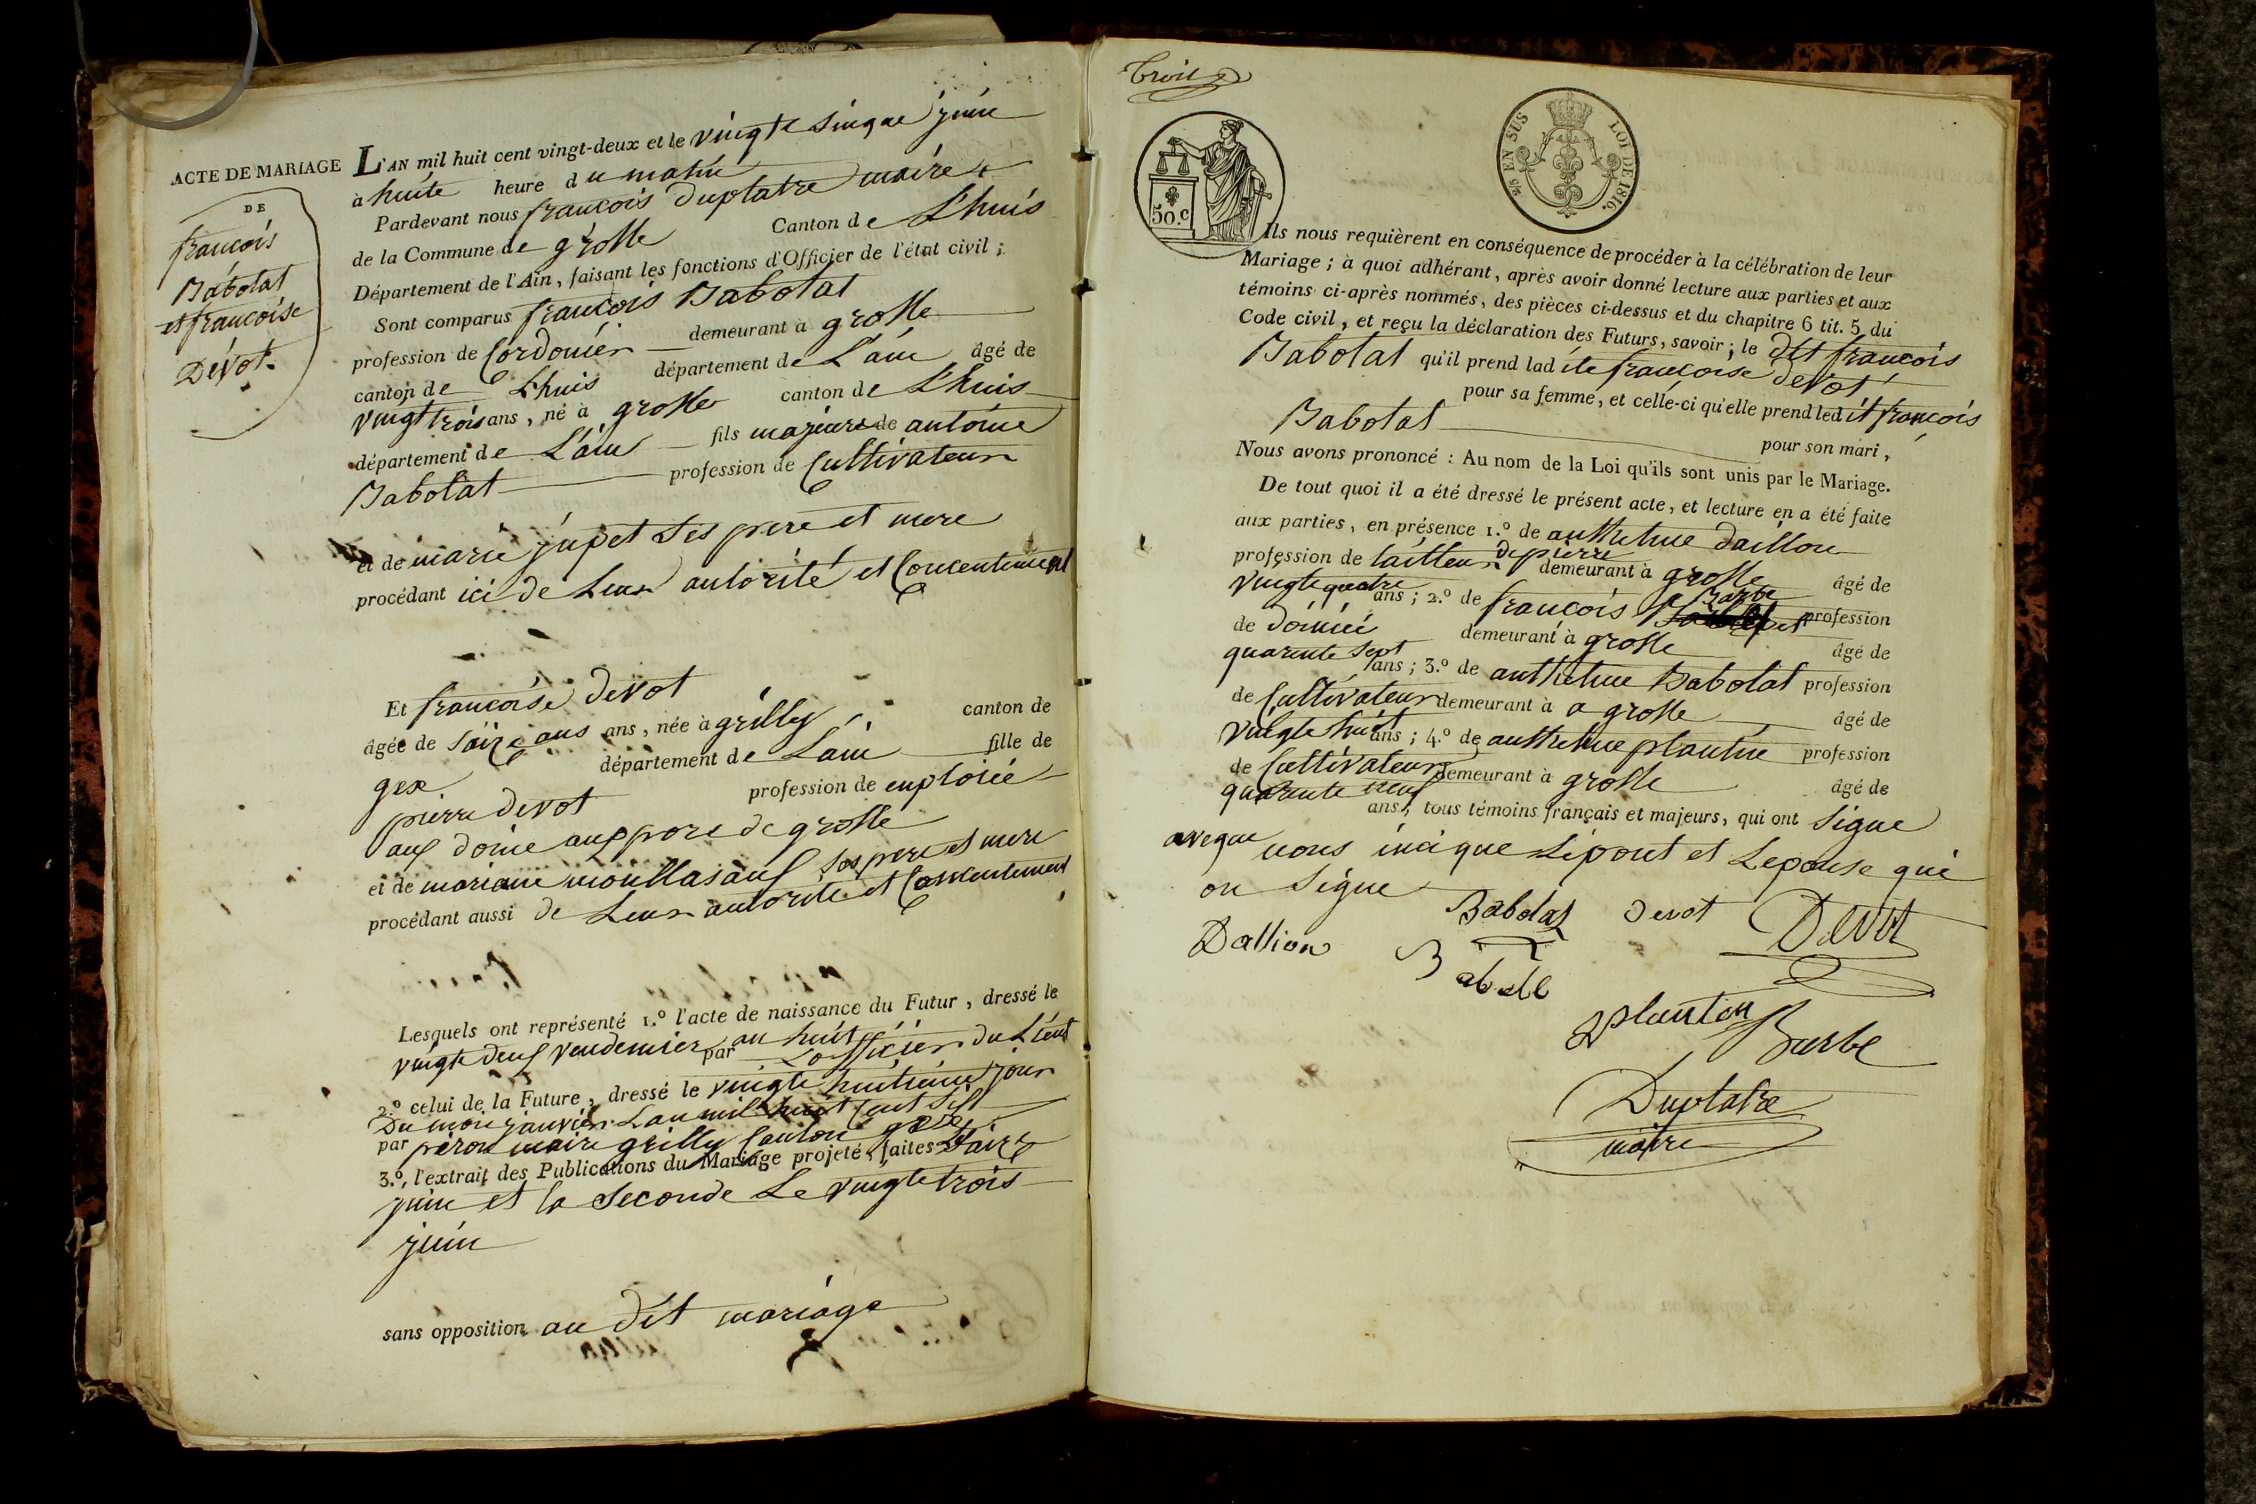 ACTE DE MARIAGE
DE
francois
Babolat
et francoise
Devot.
L'AN mil huit cent vingt-deux et le vingte sinque juin
à huite heure du matin
Pardevant nous francois Duplatre maire
de la Commune de grolle Canton de L'huis
Département de l'Ain, faisant les fonctions d'Officier de l'état civil ;
Sont comparus francois Babolat
profession de Cordonier demeurant à grolle
canton de L'huis département de L'ain âgé de
vingt trois ans, né à grolle canton de L'huis
département de L'ain fils majeure de antoine
Babolat profession de Cultivateur
et de marie jupet Ses pere et mere
procédant ici de Leur autorité et Concentement
Et francoise devot
âgée de Saize ans ans, née à grilly canton de
gex département de Lain fille de
pierre devot profession de emploiée
aux doine aux pore de grolle
et de mariane Ses pere et mere
procédant aussi de Leur autorite et Consentement
Lesquels ont représenté 1.º l'acte de naissance du Futur, dressé le
vingte deux vendemier an huit par L'officier du Lieut
2.º celui de la Future, dressé le vingte huitieme jour
Du moi janvier L'an mil huit Cent Siss
par peron maire grilly Canton gex
3.º, l'extrait des Publications du Mariage projeté, faites Saize
juin et la Seconde Le vingte trois
juin
sans opposition au dit mariage
Trois
50.c
2/5 EN SUS LOI DE 1816.
Ils nous requièrent en conséquence de procéder à la célébration de leur
Mariage ; à quoi adhérant, après avoir donné lecture aux parties et aux
témoins ci-après nommés, des pièces ci-dessus et du chapitre 6 tit. 5 du
Code civil, et reçu la déclaration des Futurs, savoir ; le dit francois
Babolat qu'il prend lad ite francoise devot
pour sa femme, et celle-ci qu'elle prend led it francois
Babolat pour son mari,
Nous avons prononcé : Au nom de la Loi qu'ils sont unis par le Mariage.
De tout quoi il a été dressé le présent acte, et lecture en a été faite
aux parties, en présence 1.º de anthelme daillon
profession de tailleur de pierre demeurant à grolle âgé de
vingte quatre ans ; 2.º de francois Barbe profession
de doinié demeurant à grolle âgé de
quarente Sept ans ; 3.º de anthelme Babolat profession
de Cultivateur demeurant à a grolle âgé de
vingte huit ans ; 4.º de anthelme plantin profession
de Cultivateur demeurant à grolle âgé de
quarente neuf ans, tous témoins français et majeurs, qui ont Signe
aveque nous inci que L'epout et Lepouse qui
on Signe
Babolat devot Devot
Dallion Babolat
plantin
Barbe
Duplatre
maire